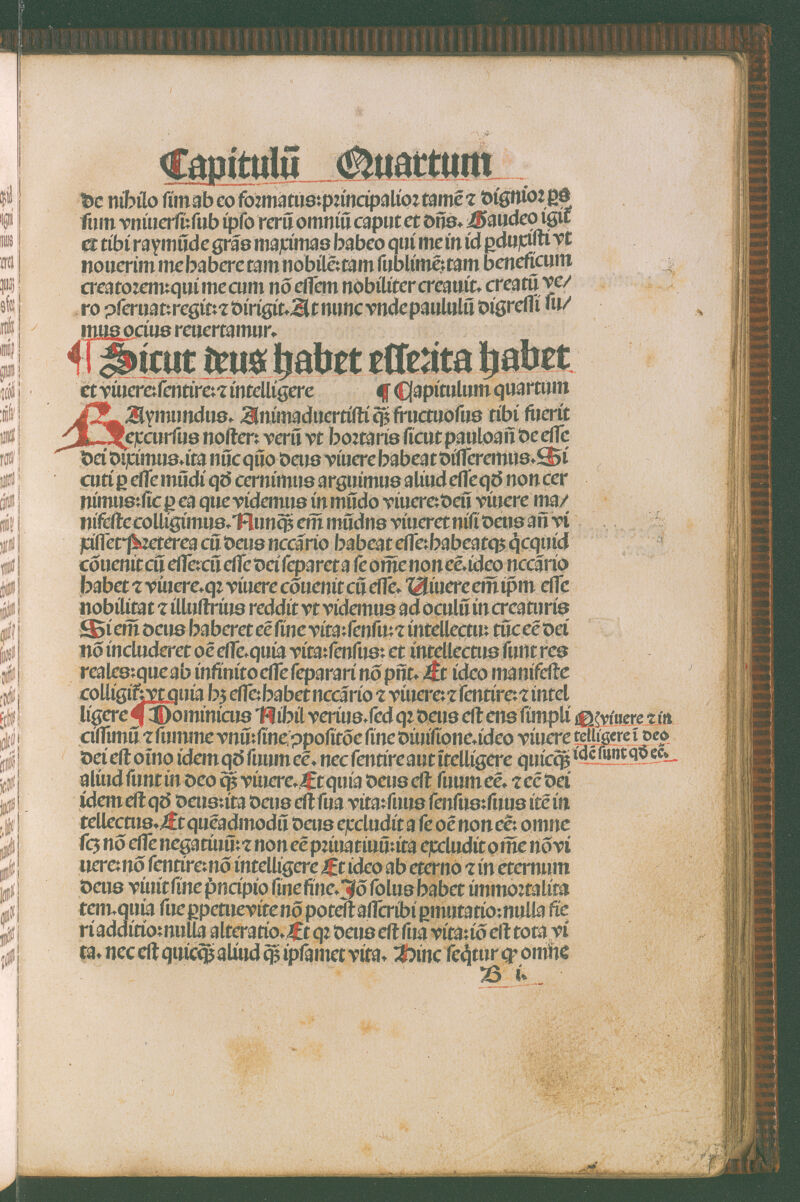 Capitulū Quartum
de nihilo sim ab eo formatus: principalior tamē ⁊ dignior ꝑs
sum vniuersi: sub ipso rerū omniū caput et dn̄s. Gaudeo igit̄
et tibi raymūde grās maximas habeo qui me in id ꝑduxisti vt
nouerim me habere tam nobilē: tam sublimē: tam beneficum
creatorem: qui me cum nō essem nobiliter creauit. creatū ve/
ro ↄseruat: regit: ⁊ dirigit. At nunc vnde paululū digressi su/
mus ocius reuertamur.
¶ Sicut deus habet esse: ita habet
et viuere: sentire: ⁊ intelligere ¶ Capitulum quartum
RAymundus. Animaduertisti qꝫ̄ fructuosus tibi fuerit
excursus noster: verū vt hortaris sicut pauloan̄ de esse
dei diximus. ita nūc quō deus viuere habeat disseremus. Si
cuti ꝑ esse mūdi qd̄ cernimus arguimus aliud esse qd̄ non cer
nimus: sic ꝑ ea que videmus in mūdo viuere: deū viuere ma/
nifeste colligimus. Nunqꝫ̄ em̄ mūdns viueret nisi deus an̄ vi
xisset Preterea cū deus nccārio habeat esse: habeatqꝫ q̇cquid
cōuenit cū esse: cū esse dei separet a se om̄e non eē. ideo nccārio
habet ⁊ viuere. qꝛ viuere cōuenit cū esse. Uiuere em̄ ip̄m esse
nobilitat ⁊ illustrius reddit vt videmus ad oculū in creaturis
Si em̄ deus haberet eē sine vita: sensu: ⁊ intellectu: tūc eē dei
nō includeret oē esse. quia vita: sensus: et intellectus sunt res
reales: que ab infinito esse separari nō pn̄t. Et ideo manifeste
colligit̄: vt quia hꝫ esse: habet nccārio ⁊ viuere: ⁊ sentire: ⁊ intel
ligere ¶ Dominicus Nihil verius. sed qꝛ deus est ens simpli
cissimū ⁊ summe vnū: sine ↄpositōe sine diuisione. ideo viuere
dei est oīno idem qd̄ suum eē. nec sentire aut ītelligere quicqꝫ̄
aliud sunt in deo qꝫ̄ viuere. Et quia deus est suum eē. ⁊ eē dei
idem est qd̄ deus: ita deus est sua vita: suus sensus: suus itē in
tellectus. Et quēadmodū deus excludit a se oē non eē: omne
scꝫ nō esse negatiuū: ⁊ non eē priuatiuū: ita excludit om̄e nō vi
uere: nō sentire: nō intelligere Et ideo ab eterno ⁊ in eternum
deus viuit sine p̄ncipio sine fine. Jō solus habet immortalita
tem. quia sue ꝑpetue vite nō potest asscribi ꝑmutatio: nulla fie
ri additio: nulla alteratio. Et qꝛ deus est sua vita: iō est tota vi
ta. nec est quicqꝫ̄ aliud qꝫ̄ ipsamet vita. Hinc seq̇tur ꝙ omne
B i.
Qꝛ viuere ⁊ in
telligere ī deo
idē sunt qd̄ eē.